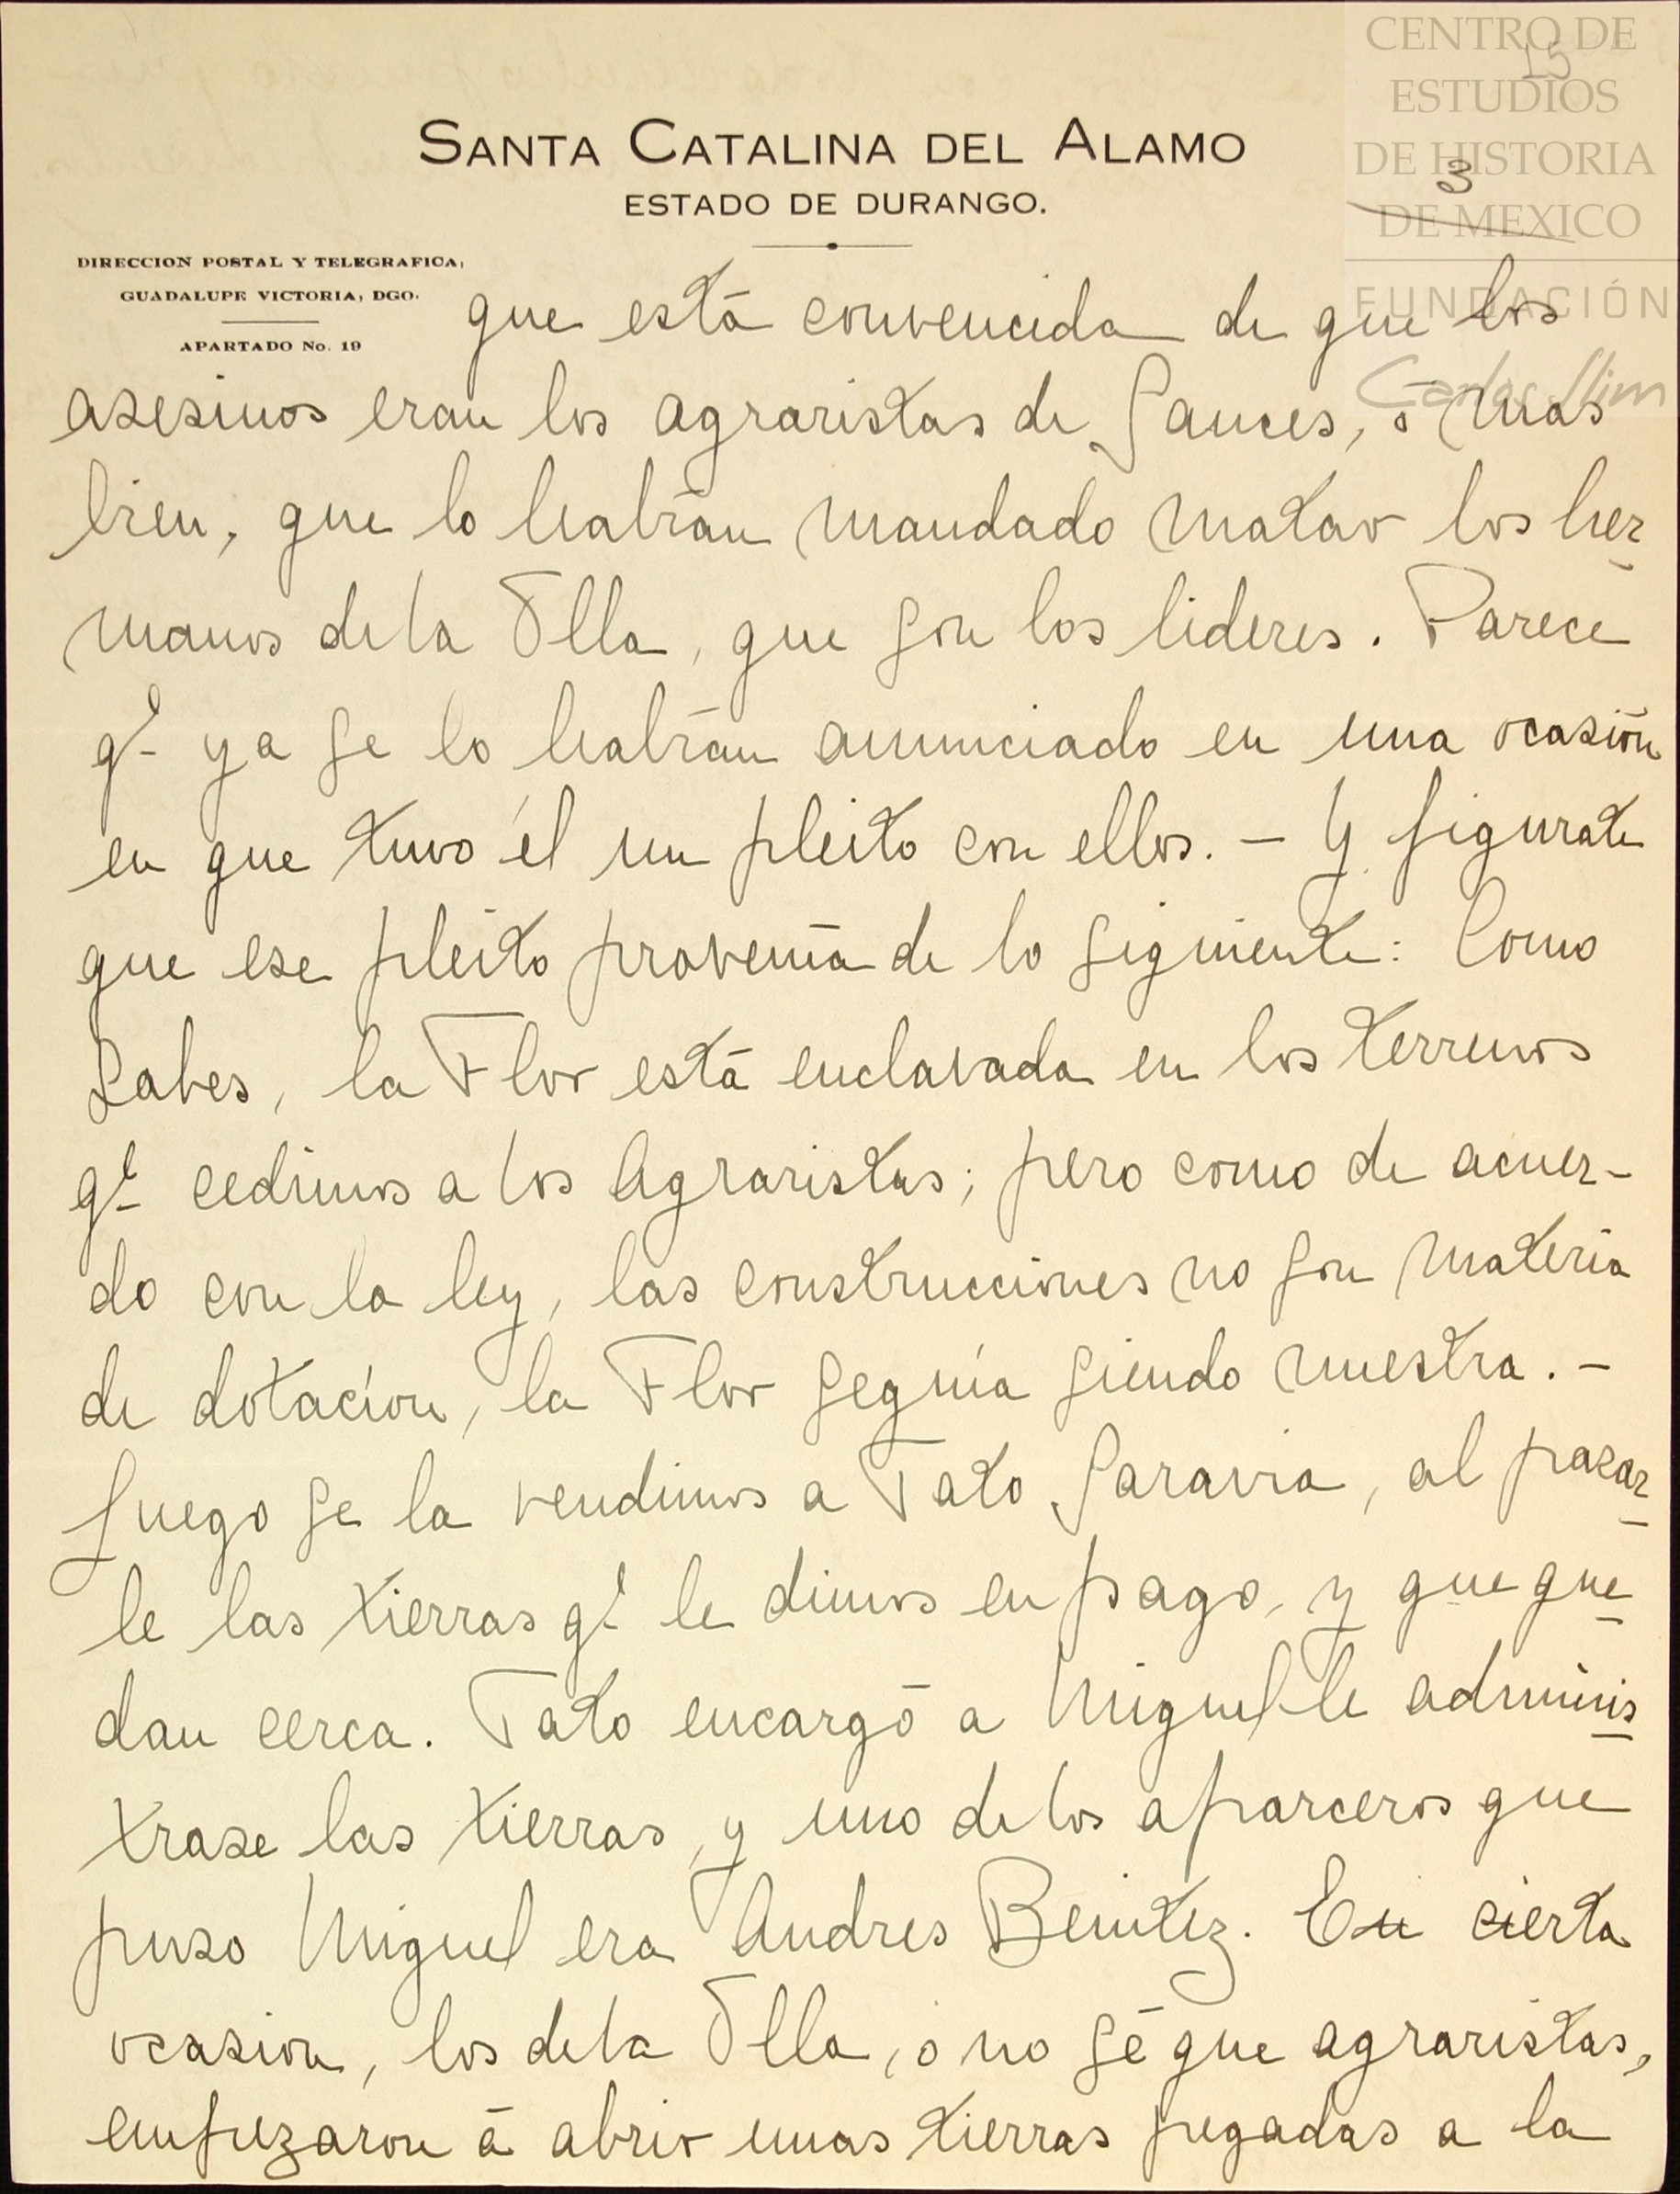 CENTRO DE
ESTUDIOS
DE HISTORIA
DE MEXICO
FUNDACIÓN
Carlos Slim
15
3
SANTA CATALINA DEL ALAMO
ESTADO DE DURANGO.
DIRECCION POSTAL Y TELEGRAFICA,
GUADALUPE VICTORIA, DGO.
APARTADO No. 19
que está convencida de que los
asesinos eran los agraristas de Sauces, ó mas
bien, que lo habían mandado matar los her-
manos de la Olla, que son los lideres. Parece
qe ya se lo habían anunciado en una ocasión
en que tuvo él un pleito con ellos. – Y figurate
que ese pleito provenía de lo siguiente: Como
Sabes, la Flor está enclavada en los terrenos
qe cedimos a los Agraristas; pero como de acuer-
do con la ley, las construcciones no son materia
de dotación, la Flor seguía siendo nuestra. –
Luego se la vendimos a Tato Saravia, al pasar-
le las tierras qe le dimos en pago, y que que-
dan cerca. Tato encargó a Miguel le adminis-
trase las tierras, y uno de los aparceros que
puso Miguel era Andres Benitez. En cierta
ocasion, los de la Olla, o no sé que agraristas,
empezaron á abrir unas tierras pegadas a la